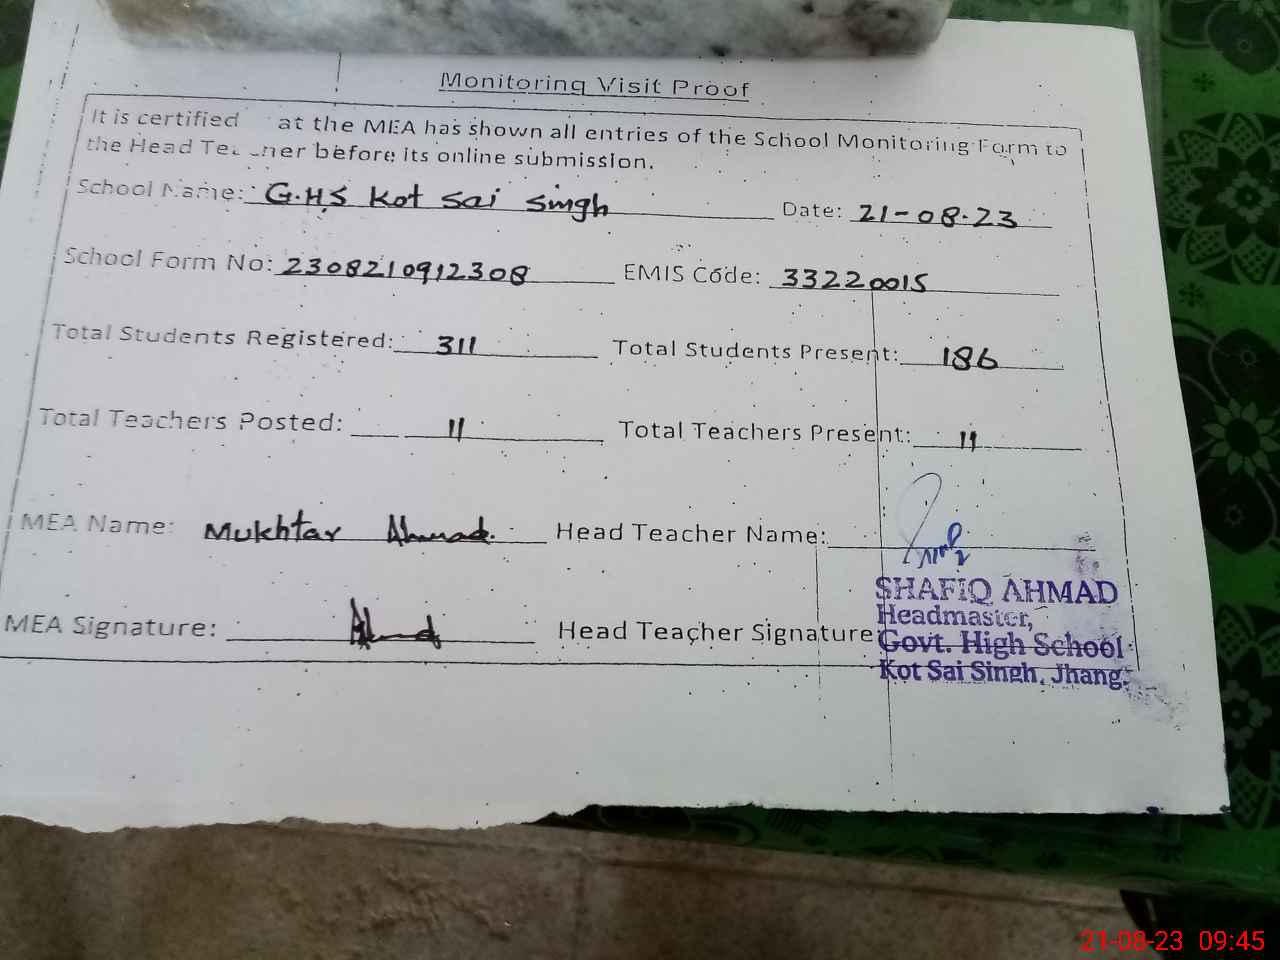 Monitoring Visit Proof
It is certified at the MEA has shown all entries of the School Monitoring Form to
the Head Teacher before its online submission.
School Name: G.H.S Kot Sai Singh Date: 21-08-23
School Form No: 2308210912308 EMIS Code: 33220015
Total Students Registered: 311 Total Students Present: 186
Total Teachers Posted: 11 Total Teachers Present: 11
MEA Name: Mukhtar Ahmad. Head Teacher Name:
SHAFIQ AHMAD
Headmaster,
MEA Signature: Ahmad Head Teacher Signature
Govt. High School
Kot Sai Singh, Jhang.
21-08-23 09:45